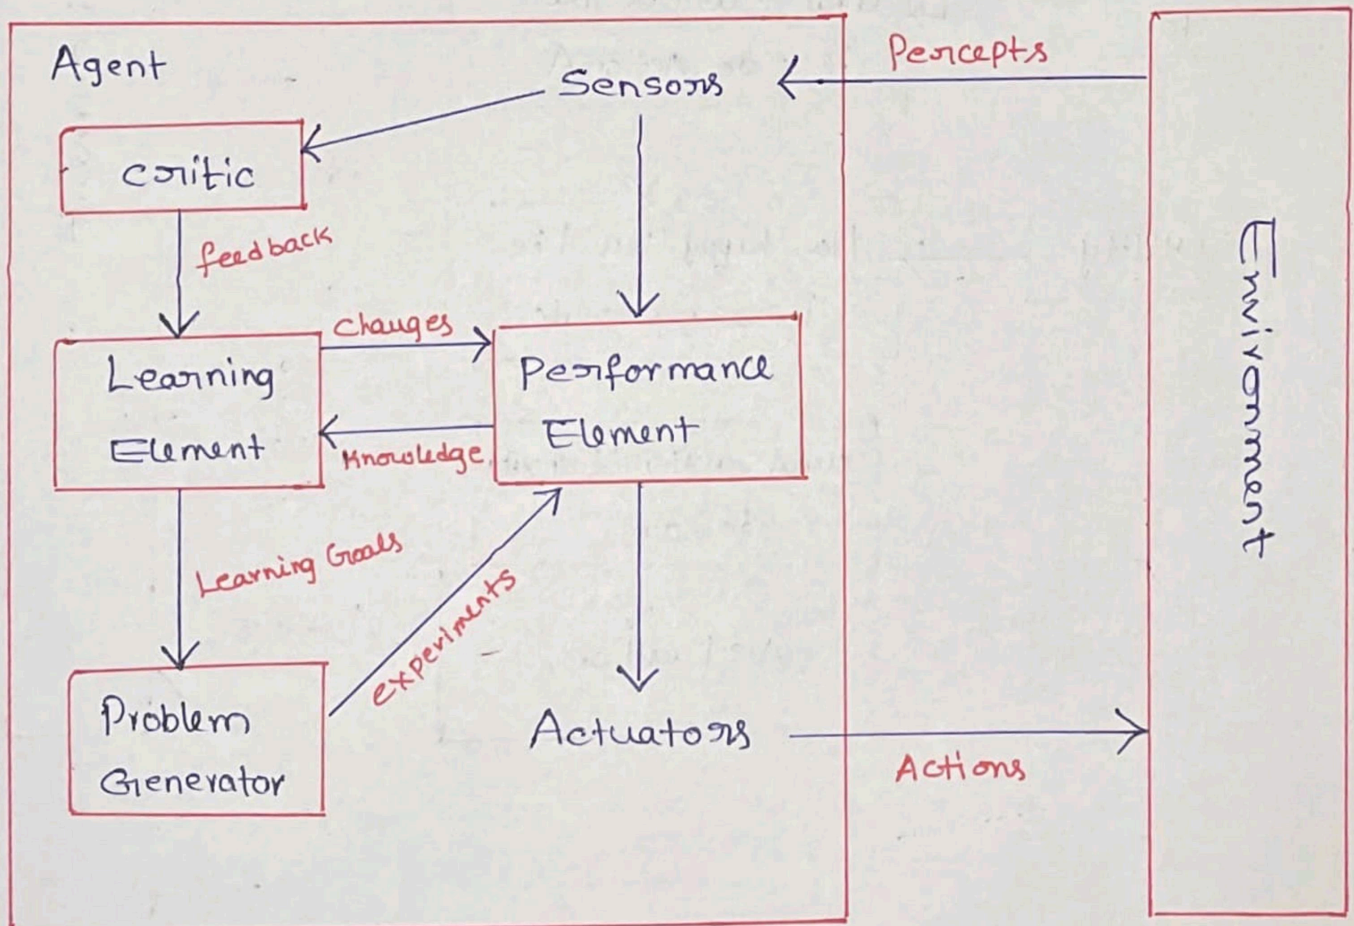 Agent
Percepts
Sensors
critic
feedback
changes
Learning
Element
Performance
Element
Knowledge
Learning Goals
experiments
Problem
Generator
Actuators
Actions
Environment